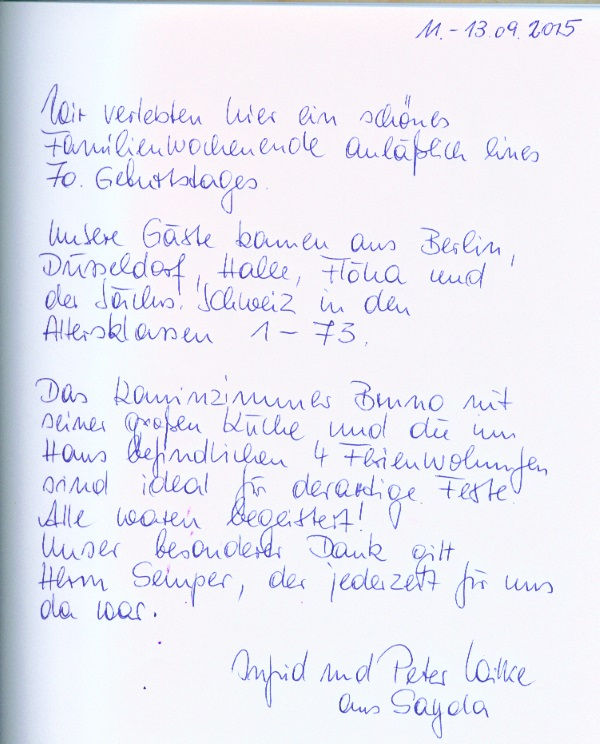 11. - 13.09.2015
Wir verlebten hier ein schönes
Familienwochenende anläßlich eines
70. Geburtstages.
Unsere Gäste kamen aus Berlin,
Düsseldorf, Halle, Flöha und
der Sächs. Schweiz in den
Altersklassen 1 - 73.
Das Kaminzimmer Bruno mit
seiner großen Küche und die im
Haus befindlichen 4 Ferienwohungen
sind ideal für derartige Feste.
Alle waren begeistert!
Unser besonderer Dank gilt
Herrn Semper, der jederzeit für uns
da war.
Ingrid und Peter
aus Sayda